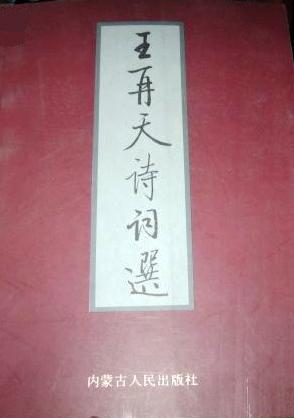 王再天诗词選
内蒙古人民出版社